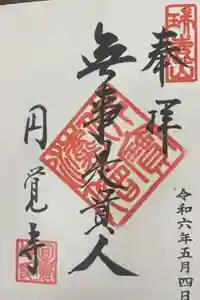 奉拝
無事是貴人
円覚寺
令和六年五月四日